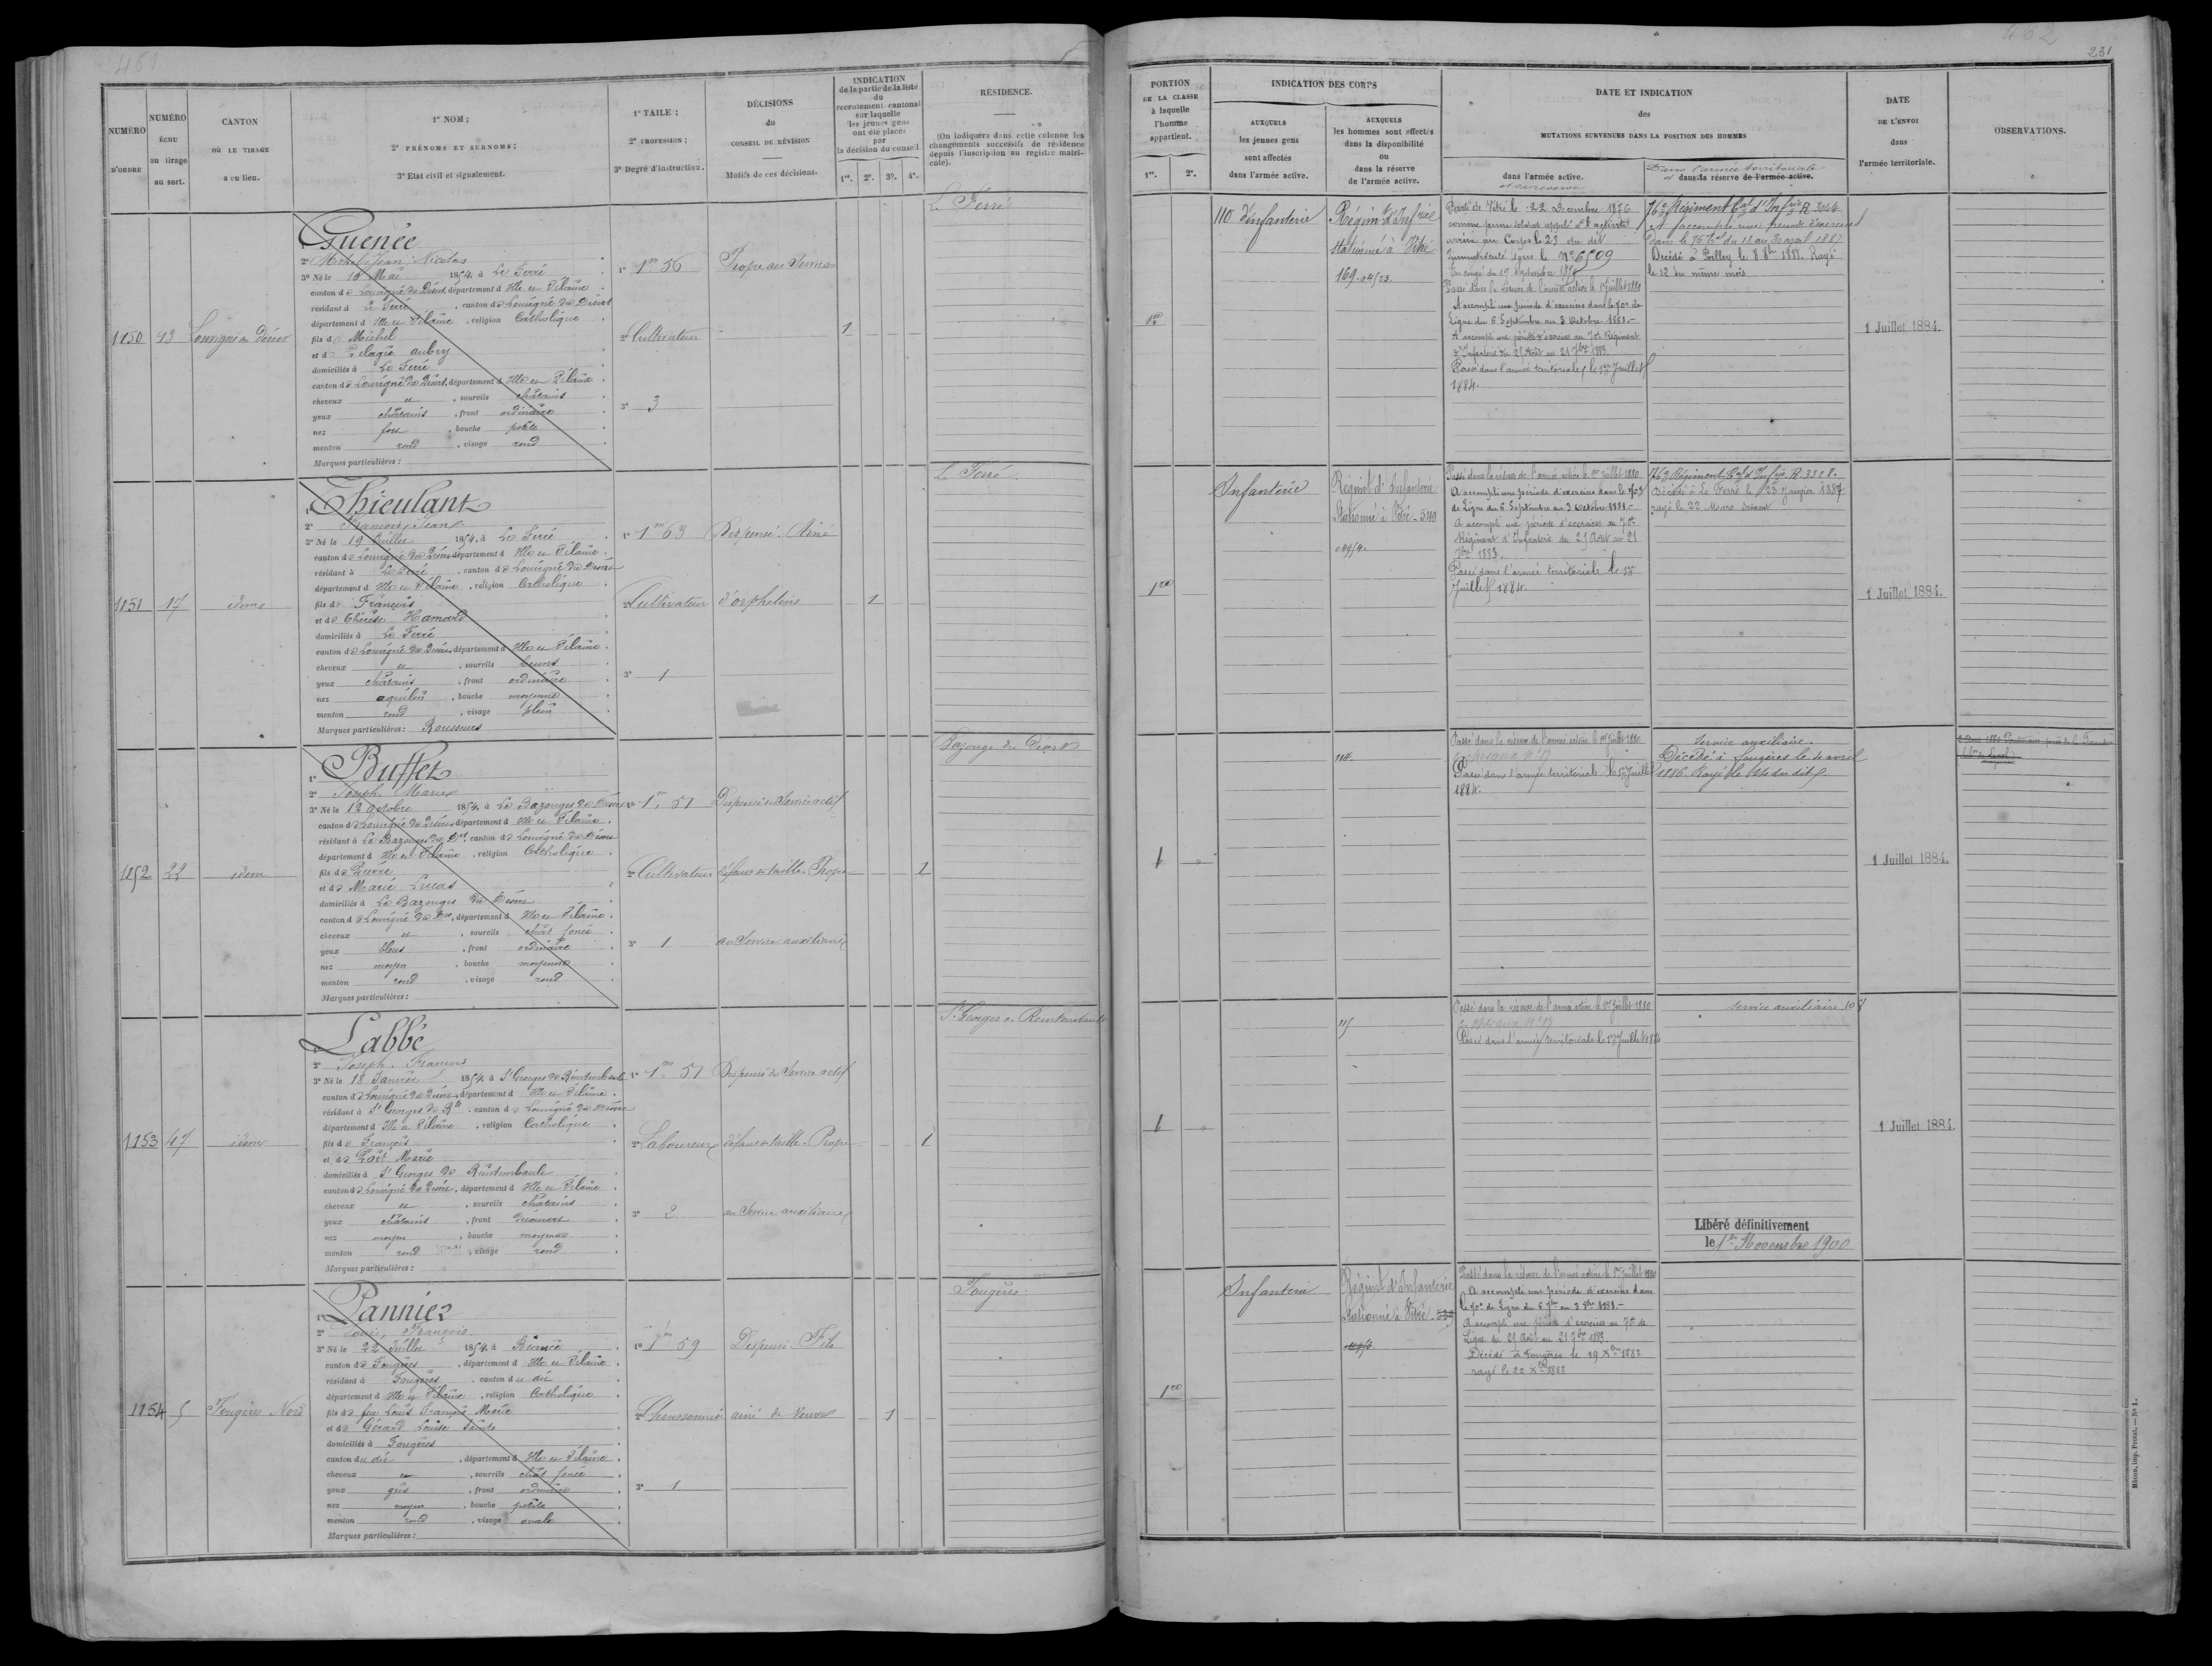 461
NUMÉRO
D'ORDRE
NUMÉRO
ÉCHU
au tirage
au sort.
CANTON
OÙ LE TIRAGE
a eu lieu.
1º NOM ;
2º PRÉNOMS ET SURNOMS ;
3º Etat civil et signalement.
1º TAILE ;
2º PROFESSION ;
3º Degré d'instruction.
DÉCISIONS
du
CONSEIL DE RÉVISION
Motifs de ces décisions.
INDICATION
de la partie de la liste
du
recrutement cantonal
sur laquelle
les jeunes gens
ont été placés
par
la décision du conseil
1re. 2e. 3e. 4e.
RÉSIDENCE.
(On indiquera dans cette colonne les
changements successifs de résidence
depuis l'inscription au registre matri-
cule).
1150
43
Louvigné du Désert
Guenée
2º Michel Jean Nicolas
3º Né le 10 Mai 1854, à Le Ferré
canton de Louvigné du Désert, département d Ille et Vilaine
résidant à Le Ferré, canton de Louvigné du Désert
département d Ille et Vilaine, religion Catholique
fils de Michel
et de Pelagie aubry
domiciliés à Le Ferré
canton de Louvigné du Désert, département d Ille et Vilaine
cheveux et, sourcils châtains
yeux châtains, front ordinaire
nez fort, bouche petite
menton rond, visage rond
Marques particulières :
1º 1m 56
2º Cultivateur
3º 3
Propre au Service
1
Le Ferré
1151
17
idem
Thieulant
2º François Jean
3º Né le 19 Juillet 1854, à Le Ferré
canton de Louvigné du Désert, département d Ille et Vilaine
résidant à Le Ferré, canton de Louvigné du Désert
département d Ille et Vilaine, religion Catholique
fils de François
et de Thérèse Hamard
domiciliés à Le Ferré
canton de Louvigné du Désert, département d Ille et Vilaine
cheveux et, sourcils bruns
yeux châtains, front ordinaire
nez aquilin, bouche moyenne
menton rond, visage plein
Marques particulières : Rousseurs
1º 1m 63
2º Cultivateur
3º 1
Dispensé. Aîné
d'orphelins
1
Le Ferré
1152
22
idem
1º Buffet
2º Joseph Marie
3º Né le 12 octobre 1854, à La Bazouges du Désert
canton de Louvigné du Désert, département d Ille et Vilaine
résidant à La Bazouges du Dert, canton de Louvigné du Désert
département d Ille et Vilaine, religion Catholique
fils de Pierre
et de Marie Lucas
domiciliés à La Bazouges du Désert
canton de Louvigné du Dert, département d Ille et Vilaine
cheveux et, sourcils chât foncé
yeux bleus, front ordinaire
nez moyen, bouche moyenne
menton rond, visage rond
Marques particulières :
1º 1m. 51
2º Cultivateur
3º 1
Dispensé du Service actif
défaut de taille. Propre
au Service auxiliaire
1
Bazouge du Désert
1153
47
idem
Labbé
2º Joseph. François
3º Né le 18 Janvier 1854, à St Georges de Reintembault
canton de Louvigné du Désert, département d Ille et Vilaine
résidant à St Georges de Rt, canton de Louvigné du Désert
département d Ille et Vilaine, religion Catholique
fils de François
et de Marie
domiciliés à St Georges de Reintembault
canton de Louvigné du Désert, département d Ille et Vilaine
cheveux et, sourcils châtains
yeux châtains, front découvert
nez moyen, bouche moyenne
menton rond, visage rond
Marques particulières :
1º 1m. 51
2º Laboureur
3º 2
Dispensé du Service actif
défaut de taille. Propre
au Service auxiliaire
1
St Georges de Reintembault
1154
5
Fougères Nord
1º Pannier
2º Louis, François
3º Né le 22 Juillet 1854, à Beaucé
canton de Fougères, département d Ille et Vilaine
résidant à Fougères, canton du dit
département d Ille et Vilaine, religion Catholique
fils de feu Louis François Marie
et de Gérard Louise
domiciliés à Fougères
canton du dit, département d Ille et Vilaine
cheveux et, sourcils chât foncé
yeux gris, front ordinaire
nez moyen, bouche petite
menton rond, visage ovale
Marques particulières :
1º 1m 59
3º 1
Dispensé. Fils
aîné de veuve
1
Fougères
462
231
PORTION
DE LA CLASSE
à laquelle
l'homme
appartient.
1re. 2e.
INDICATION DES CORPS
AUXQUELS
les jeunes gens
sont affectés
dans l'armée active.
AUXQUELS
les hommes sont affectés
dans la disponibilité
ou
dans la réserve
de l'armée active.
DATE ET INDICATION
des
MUTATIONS SURVENUES DANS LA POSITION DES HOMMES
dans l'armée active.
et sa réserve
Dans l'armée territoriale
et dans la réserve de l'armée active.
DATE
DE L'ENVOI
dans
l'armée territoriale.
OBSERVATIONS.
1re
110 d'infanterie
Régimt d'Infrie
stationné à Vitré
169
Parti de Vitré le 22 Décembre 1876
comme jeune soldat appelé à l'activité
arrivé au Corps le 23 du dit
Immatriculé sous le No 6509
En congé du 17 Septembre
Passé dans la réserve de l'armée active le 1er Juillet 1880
A accompli une période d'exercices dans le 70e de
Ligne du 6 Septembre au 3 Octobre 1881.-
A accompli une période d'exercices au 70e Régiment
d'Infanterie du 25 Août au 21 7bre 1883.
Passé dans l'armée territoriale le 1er Juillet
1884.
76e Régiment Tal d'Infrie R 3044
A accompli une période d'exercices
dans le 76e Tal du 18 au 30 avril 1887
Décédé à Poilley le 8 8bre 1888. Rayé
le 12 du même mois
1 Juillet 1884.
1re
Infanterie
Régimt d'Infanterie
Stationné à Vitré - 540
Passé dans la réserve de l'armée active le 1er Juillet 1880
A accompli une période d'exercices dans le 70e
de Ligne du 6 Septembre au 3 Octobre 1881.-
A accompli une période d'exercices au 70e
Régiment d'Infanterie du 25 Août au 21
7bre 1883.
Passé dans l'armée territoriale le 1er
Juillet 1884.
76e Régiment Tal d'Infrie. R. 3328.
Décédé à Le Ferré le 23 Janvier 1887
rayé le 22 Mars suivant
1 Juillet 1884.
1
114.
Passé dans la réserve de l'armée active le 1er Juillet 1880
Passé dans l'armée territoriale le 1er Juillet
1884.
Service auxiliaire.
Décédé à Fougères le 4 avril
1886. Rayé le du dit
1 Juillet 1884.
1
115
Passé dans la réserve de l'armée active le 1er Juillet 1880
Passé dans l'armée territoriale le 1er Juillet 1884
Service auxiliaire 108
Libéré définitivement
le 1er Novembre 1900
1 Juillet 1884.
1re
Infanterie
Régimt d'Infanterie
Stationné à Vitré
Passé dans la réserve de l'armée active le 1er Juillet 1880
A accompli une période d'exercices dans
le 70e de Ligne du 6 7bre au 3 8bre 1881.-
A accompli une période d'exercices au 70e de
Ligne du 25 Août au 21 7bre 1883.
Décédé à Fougères le 19 Xbre 1883
rayé le 22 Xbre 1883
Mâcon, imp. Protat. — Nº 1.